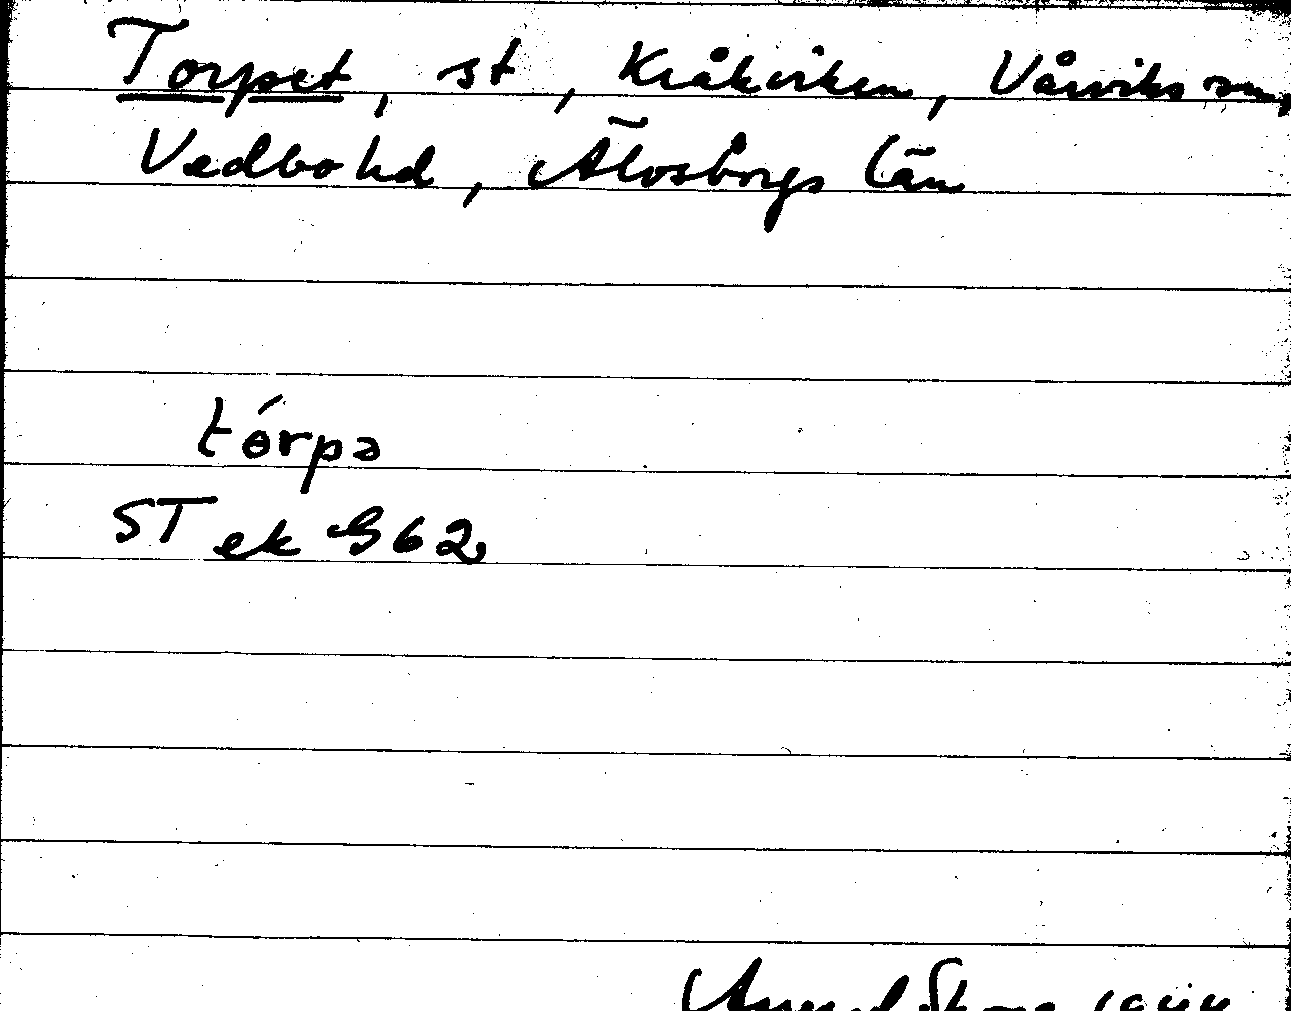 Torpet, st, Kråkviken, Vårviks sn,
Vedbo hd, Älvsborgs län
tɵ́rpə
ST ek G 62